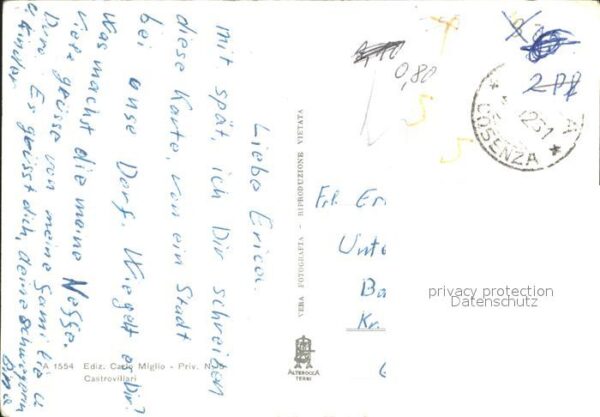 Liebe Erica.
mit spät, ich Dir schreiben
diese Karte, von ein Stadt
bei unse Dorf. Wiegelt es Dir?
Was machst die meine Neffe.
Viele grüsse von meine Familie u
Dure Es grüsst dich, deine schwägerin
u kinder
VERA FOTOGRAFIA - RIPRODUZIONE VIETATA
A 1554 Ediz. Carlo Miglio - Priv. N
Castrovillari
ALTEROCCA
TERNI
0,80
5
5
COSENZA
Frl. Er
Unte
Ba
Kr.
privacy protection
Datenschutz